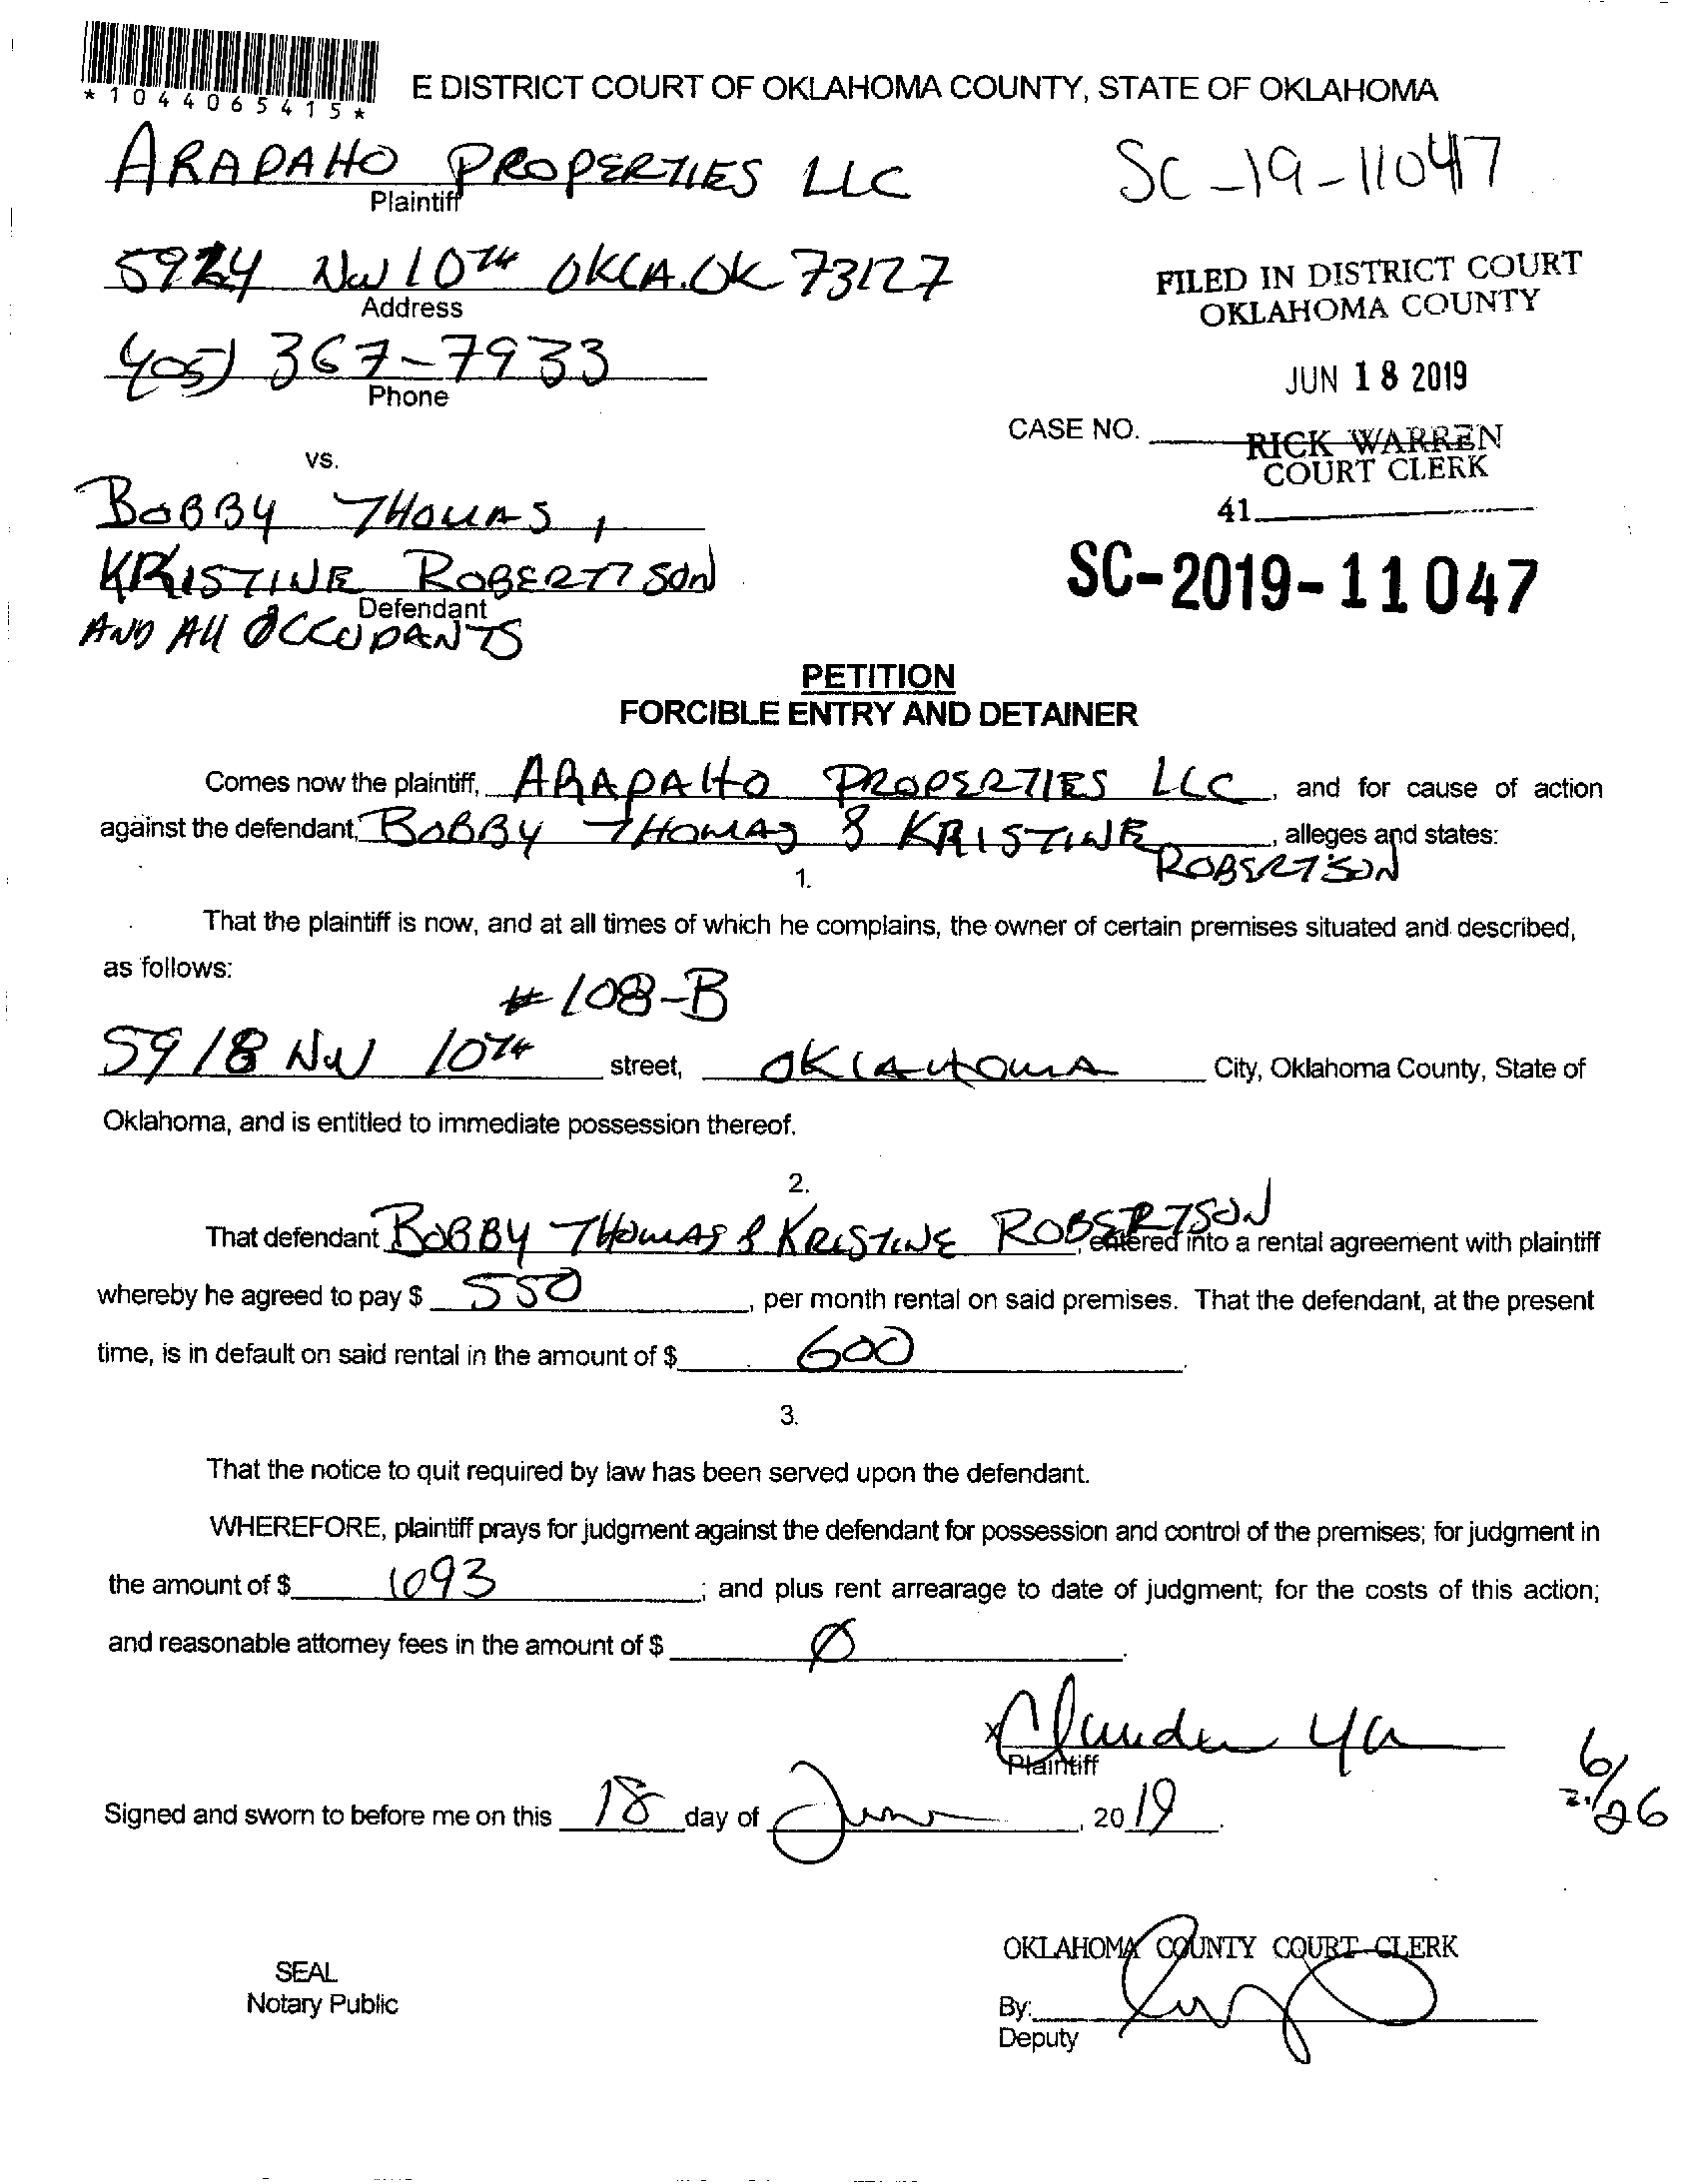 *1044065415*
E DISTRICT COURT OF OKLAHOMA COUNTY, STATE OF OKLAHOMA
ARAPAHO PROPERTIES LLC
Plaintiff
SC-19-11047
5924 NW 10TH OKLA. OK 73127
Address
FILED IN DISTRICT COURT
OKLAHOMA COUNTY
405) 367-7933
Phone
JUN 18 2019
CASE NO.
RICK WARREN
COURT CLERK
vs.
41
BOBBY THOMAS,
KRISTINE ROBERTSON
Defendant
AND All OCCUPANTS
SC-2019-11047
PETITION
FORCIBLE ENTRY AND DETAINER
Comes now the plaintiff, ARAPAHO PROPERTIES LLC, and for cause of action
against the defendant, BOBBY THOMAS & KRISTINE, alleges and states:
ROBERTSON
1.
That the plaintiff is now, and at all times of which he complains, the owner of certain premises situated and described,
as follows:
#108-B
5918 NW 10TH street, OKLAHOMA City, Oklahoma County, State of
Oklahoma, and is entitled to immediate possession thereof.
2.
That defendant BOBBY THOMAS & KRISTINE ROBERTSON, entered into a rental agreement with plaintiff
whereby he agreed to pay $ 550, per month rental on said premises. That the defendant, at the present
time, is in default on said rental in the amount of $ 600.
3.
That the notice to quit required by law has been served upon the defendant.
WHEREFORE, plaintiff prays for judgment against the defendant for possession and control of the premises; for judgment in
the amount of $ 1093; and plus rent arrearage to date of judgment; for the costs of this action;
and reasonable attorney fees in the amount of $ Ø.
X
Plaintiff
Signed and sworn to before me on this 18 day of June, 2019.
6/26
SEAL
Notary Public
OKLAHOMA COUNTY COURT CLERK
By:
Deputy